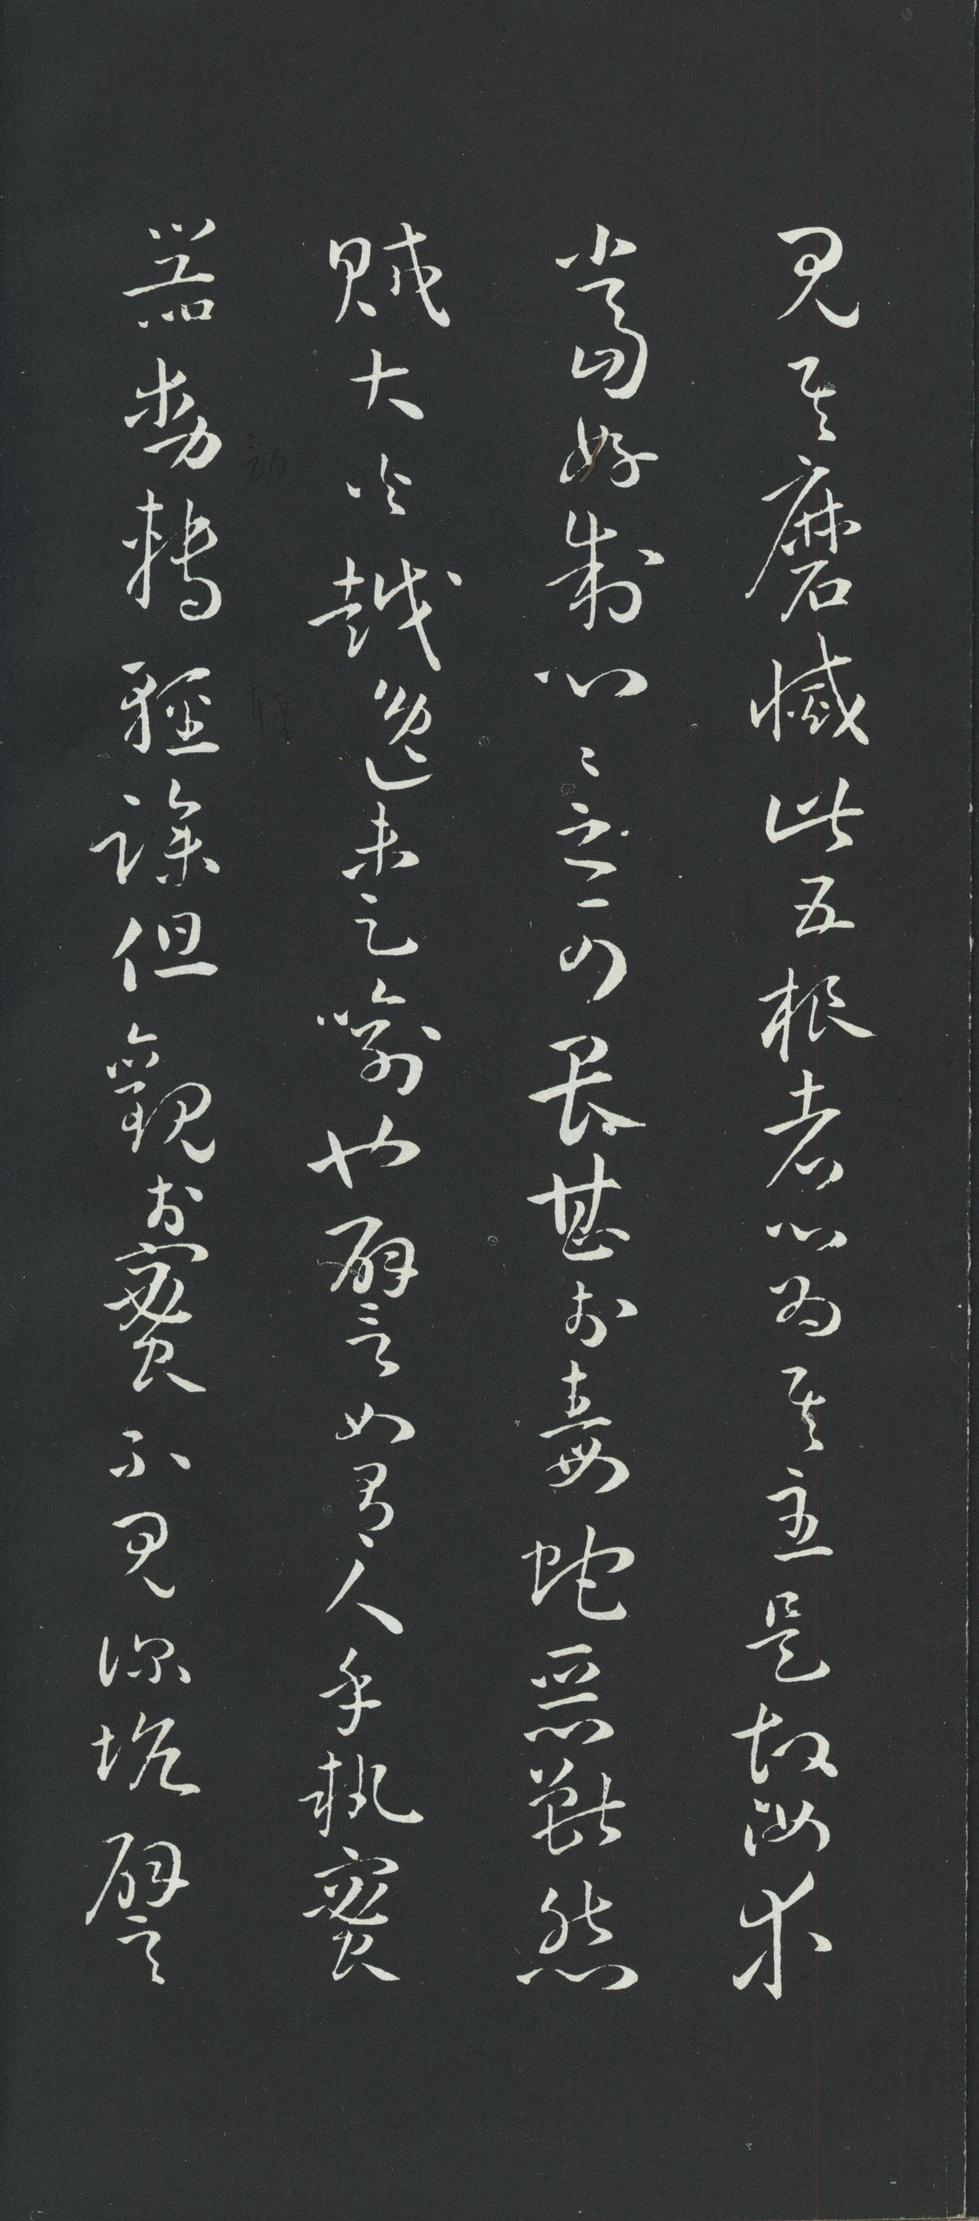 見其磨滅此五根者心為其主是故汝等
當好制心〻之可畏甚於毒蛇惡獸怨
賊大火越逸未足喻也譬如有人手執蜜
器動轉輕躁但觀於蜜不見深坑譬